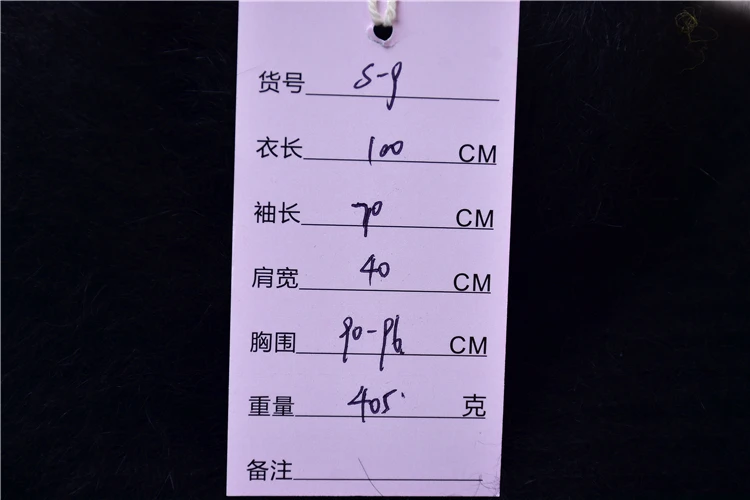 货号 S-9
衣长 100 CM
袖长 70 CM
肩宽 40 CM
胸围 90-96 CM
重量 405 克
备注